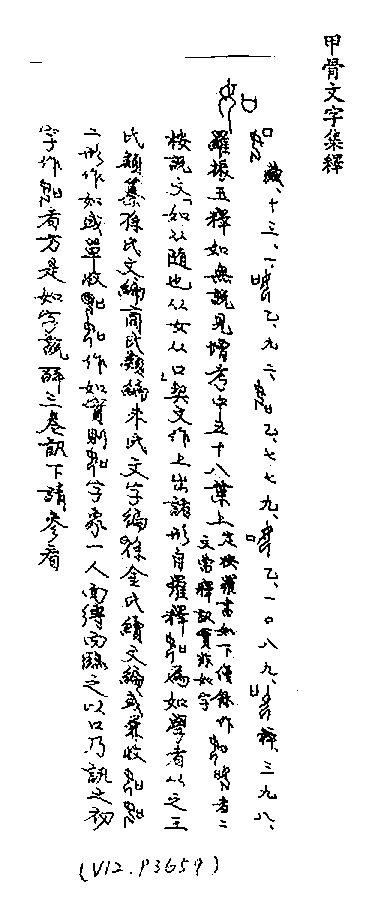 甲骨文字集釋
藏、十三、一 乙、九六 乙、七七九、 乙、一〇八九、 釋、三九八、
羅振玉釋如無說見增考中五十八葉上 定按羅書如下僅錄作 者二文當釋訊實非如字
桉說文「如从隨也从女从口」契文作上出諸形自羅釋 為如學者从之王
氏類纂孫氏文編商氏類編朱氏文字編徐金氏續文編或兼收
二形作如或單收 作如實則 字象一人面縛而臨之以口乃訊之初
字作 者方是如字說詳三卷訊下請參看
(V12.P3659)